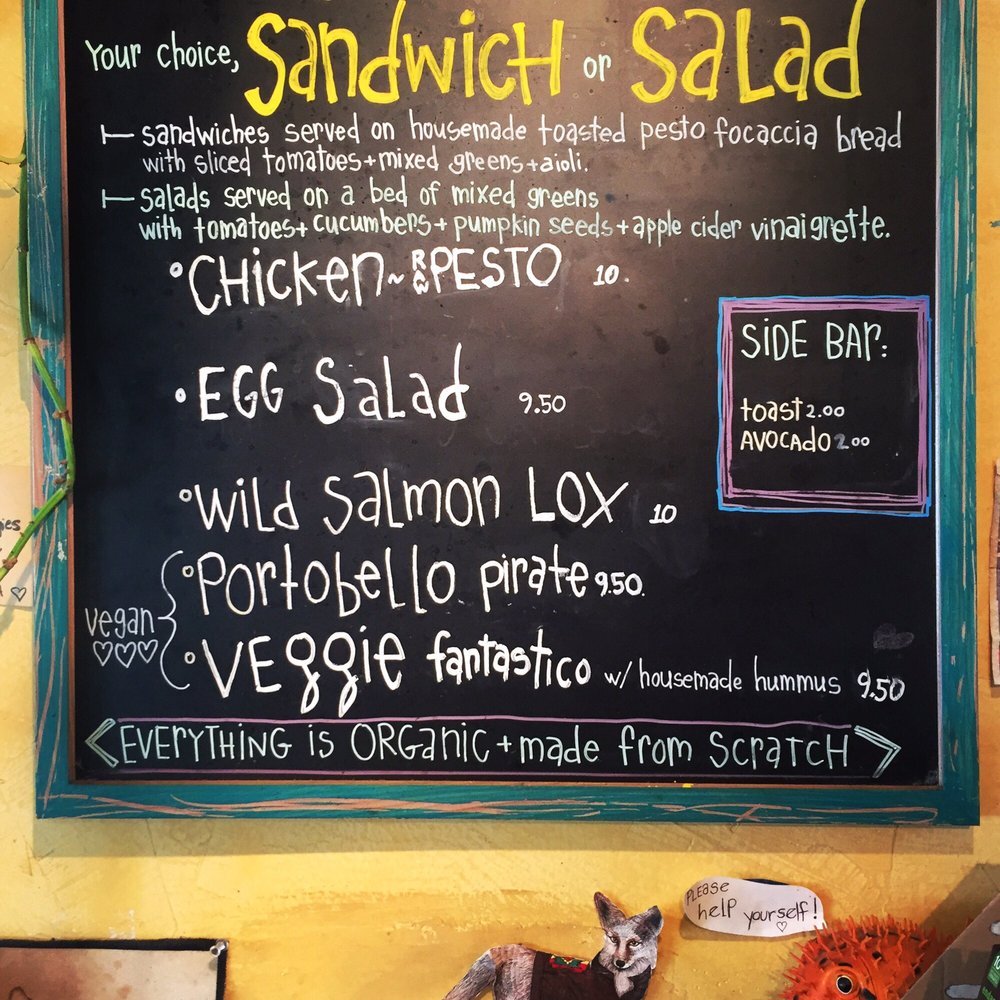 Your choice, Sandwich or Salad
sandwiches served on housemade toasted pesto focaccia bread
with sliced tomatoes + mixed greens + aioli.
salads served on a bed of mixed greens
with tomatoes + cucumbers + pumpkin seeds + apple cider vinaigrette.
• CHicken ~ RAW PESTO 10.
• EGG Salad 9.50
• Wild Salmon LOX 10
• Portobello pirate 9.50.
vegan
• VEggiE fantastico w/ housemade hummus 9.50
SiDE BAr:
toast 2.00
AVOCADO 2.00
EVERYTHING is ORGANIC + made from ScratcH
PLEASE
help yourself!